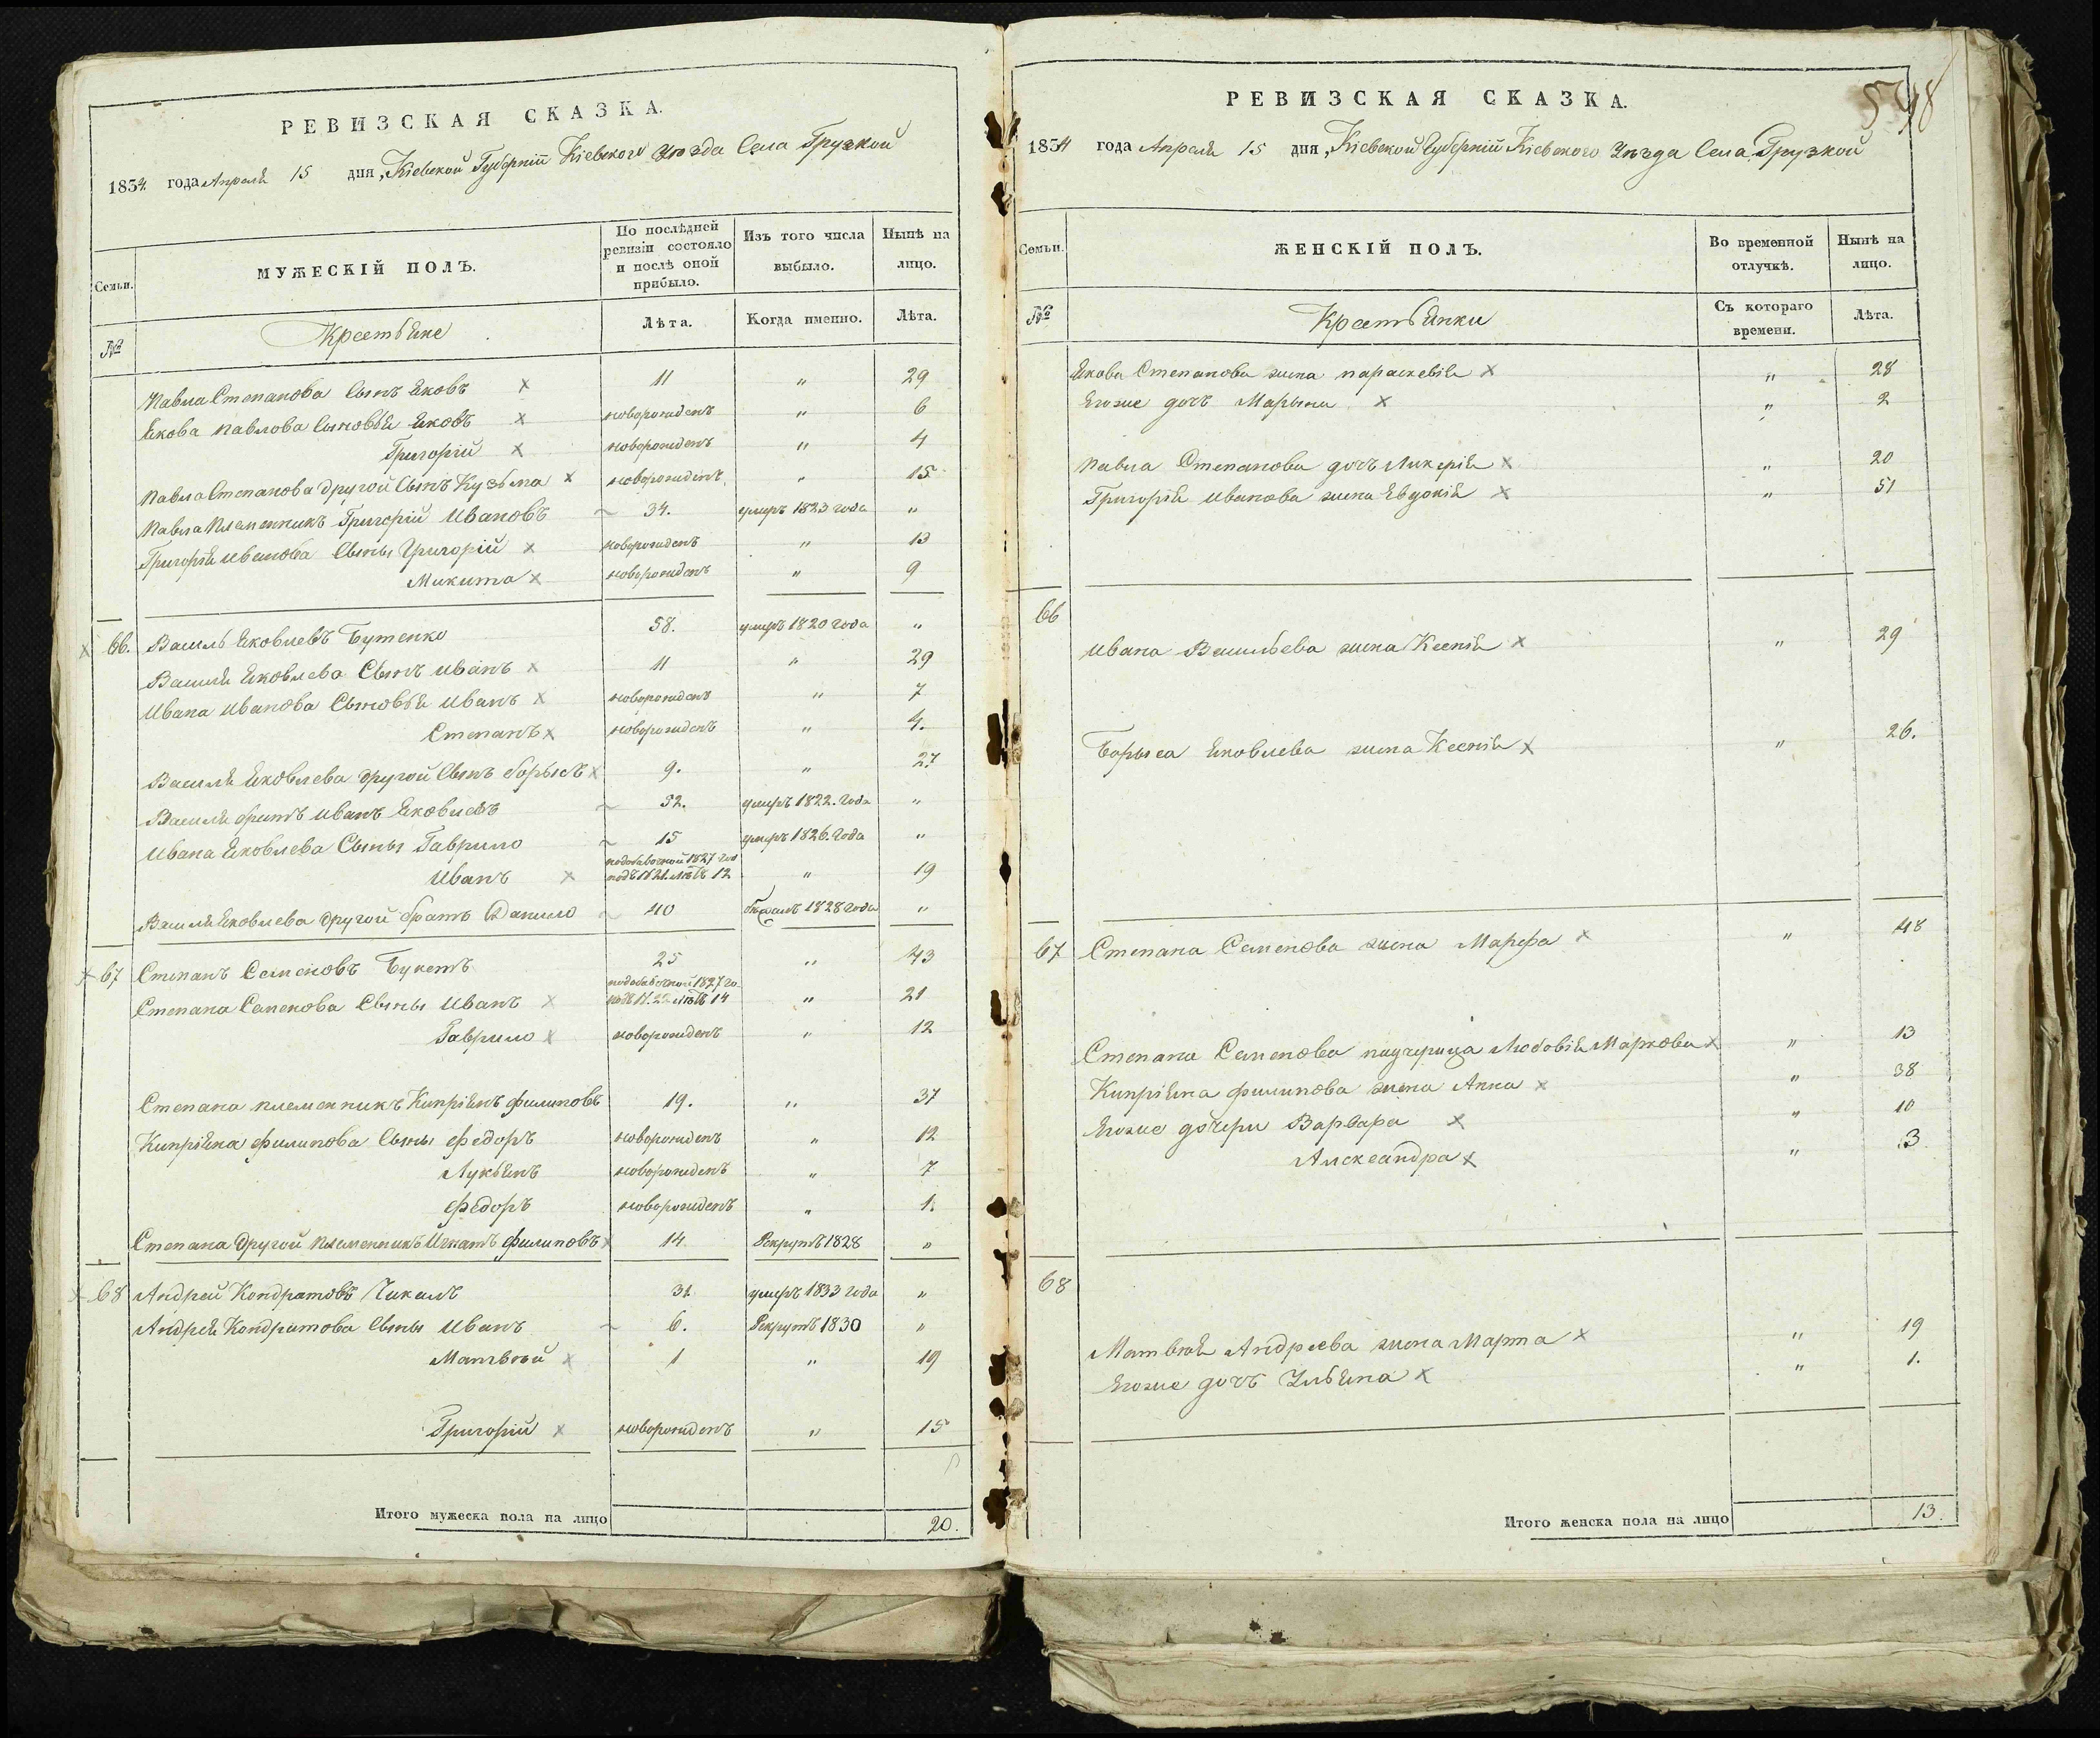 РЕВИЗСКАЯ СКАЗКА.
1834 года Апреля 15 дня, Кіевской Губерніи Кіевского Уѣзда Села Грузкой
Семьи.
МУЖЕСКІЙ ПОЛЪ.
По послѣдней ревизіи состояло и послѣ оной прибыло.
Изъ того числа выбыло.
Нынѣ на лицо.
№
Крестьяне
Лѣта.
Когда именно.
Лѣта.
Павла Степанова Сынъ Яковъ х 11 " 29
Якова Павлова Сыновья Яковъ х новорожденъ " 6
Григорій х новорожденъ " 4
Павла Степанова другой Сынъ Кузьма х новорожденъ " 15
Павла Племенникъ Григорій Ивановъ 34. умеръ 1823 года "
Григорія Иванова Сыны Григорій х новорожденъ " 13
Микита х новорожденъ " 9
х 66. Василь Яковлевъ Бутенко 58. умеръ 1820 года "
Василя Яковлева Сынъ Иванъ х 11 " 29
Ивана Иванова Сыновья Иванъ х новорожденъ " 7
Степанъ х новорожденъ " 4.
Василя Яковлева другой Сынъ борысъ х 9. " 27
Василя братъ Иванъ Яковлевъ 52. умеръ 1822. года "
Ивана Яковлева Сыны Гаврило 15 умеръ 1826. года "
Иванъ х 1827 12 " 19
Василя Яковлева другой братъ Данило 40 1828 года "
х 67 Степанъ Семеновъ Букетъ 25 " 43
Степана Семенова Сыны Иванъ х 1827 14 " 21
Гаврило х новорожденъ " 12
Степана племенникъ Кипріянъ филиповъ 19. " 37
Кипріяна филипова Сыны федоръ новорожденъ " 12
Лукьянъ новорожденъ " 7
федоръ новорожденъ " 1.
Степана другой племенникъ Игнатъ филиповъ х 14 Рекрутъ 1828 "
х 68 Андрей Кондратовъ Чикалъ 31 умеръ 1833 года "
Андрея Кондратова Сыны Иванъ 6. Рекрутъ 1830 "
Матвѣй х 1 " 19
Григорій х новорожденъ " 15
Итого мужеска пола на лицо 20.
548
РЕВИЗСКАЯ СКАЗКА.
1834 года Апреля 15 дня, Кіевской Губерніи Кіевского Уѣзда Села Грузкой
Семьи.
ЖЕНСКІЙ ПОЛЪ.
Во временной отлучкѣ.
Нынѣ на лицо.
№
Крестьянки
Съ котораго времени.
Лѣта.
Якова Степанова жена параскевія х " 28
Егоже дочь Марына х " 2
Павла Степанова дочь Ликерія х " 20
Григорія Иванова жена Евдокія х " 51
66
Ивана Васильева жена Ксенія х " 29
Борыса Яковлева жена Ксенія х " 26.
67 Степана Семенова жена Марфа х " 48
Степана Семенова падчерица Любовія Маркова х " 13
Кипріяна филипова жена Анна х " 38
Егоже дочери Варвара х " 10
Александра х " 3
68
Матвѣя Андреева жена Марта х " 19
Егоже дочь Ульяна х " 1.
Итого женска пола на лицо 13.